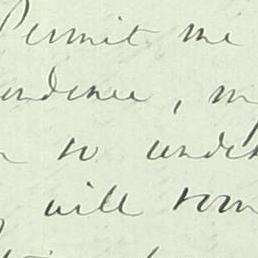 Permit me
ndence, m
n so unde
will som